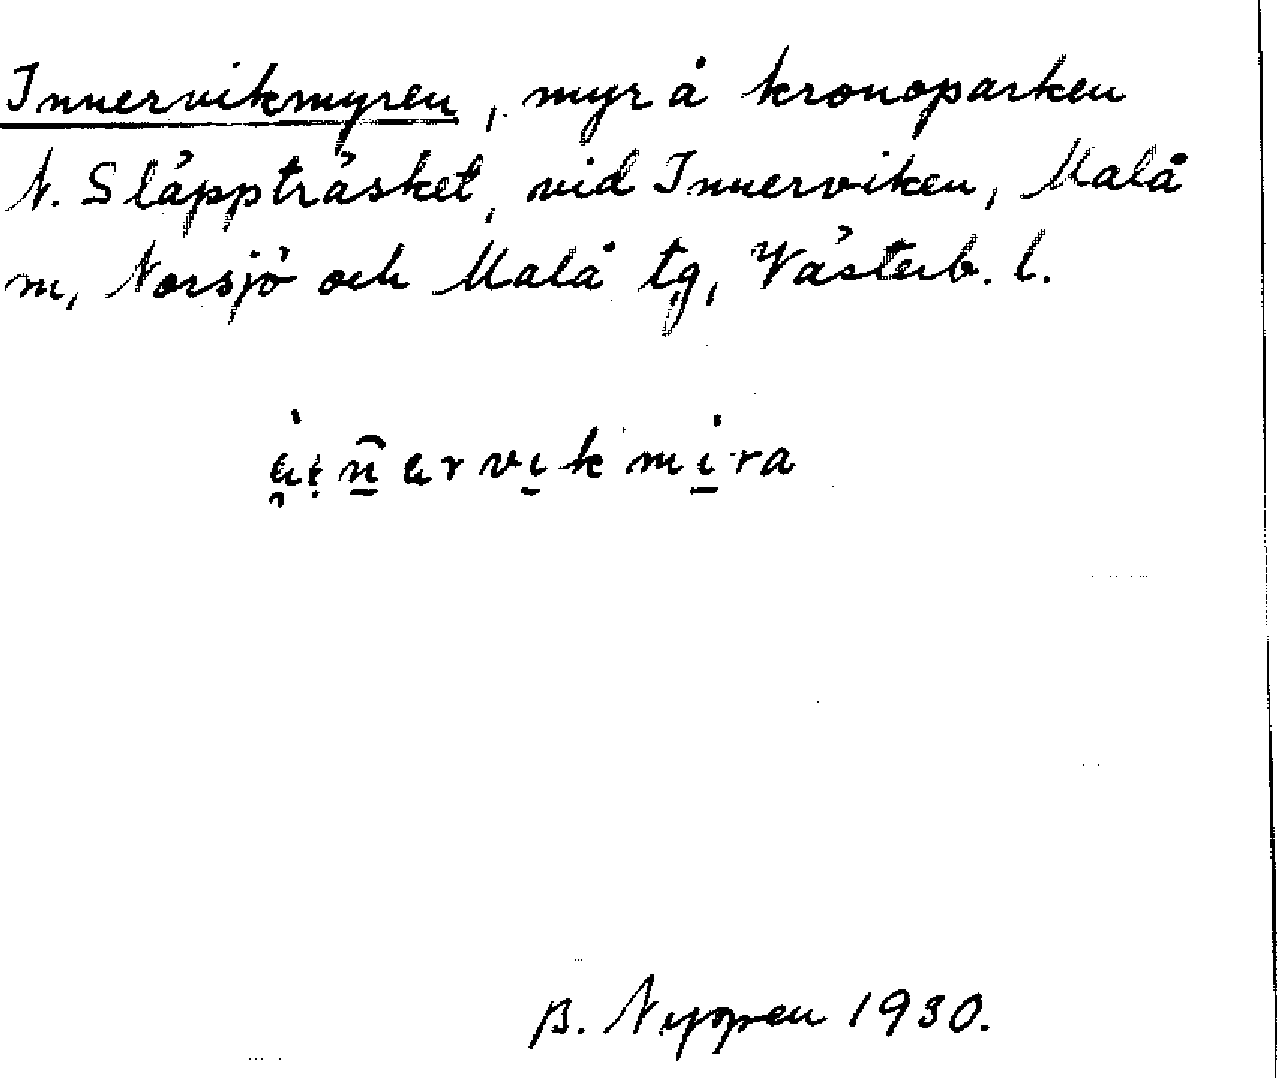 Innervikmyren, myr å kronoparken
N. Släppträsket, vid Innerviken, Malå
m, Norsjö och Malå tg, Västerb. l.
B. Nyppen 1930.